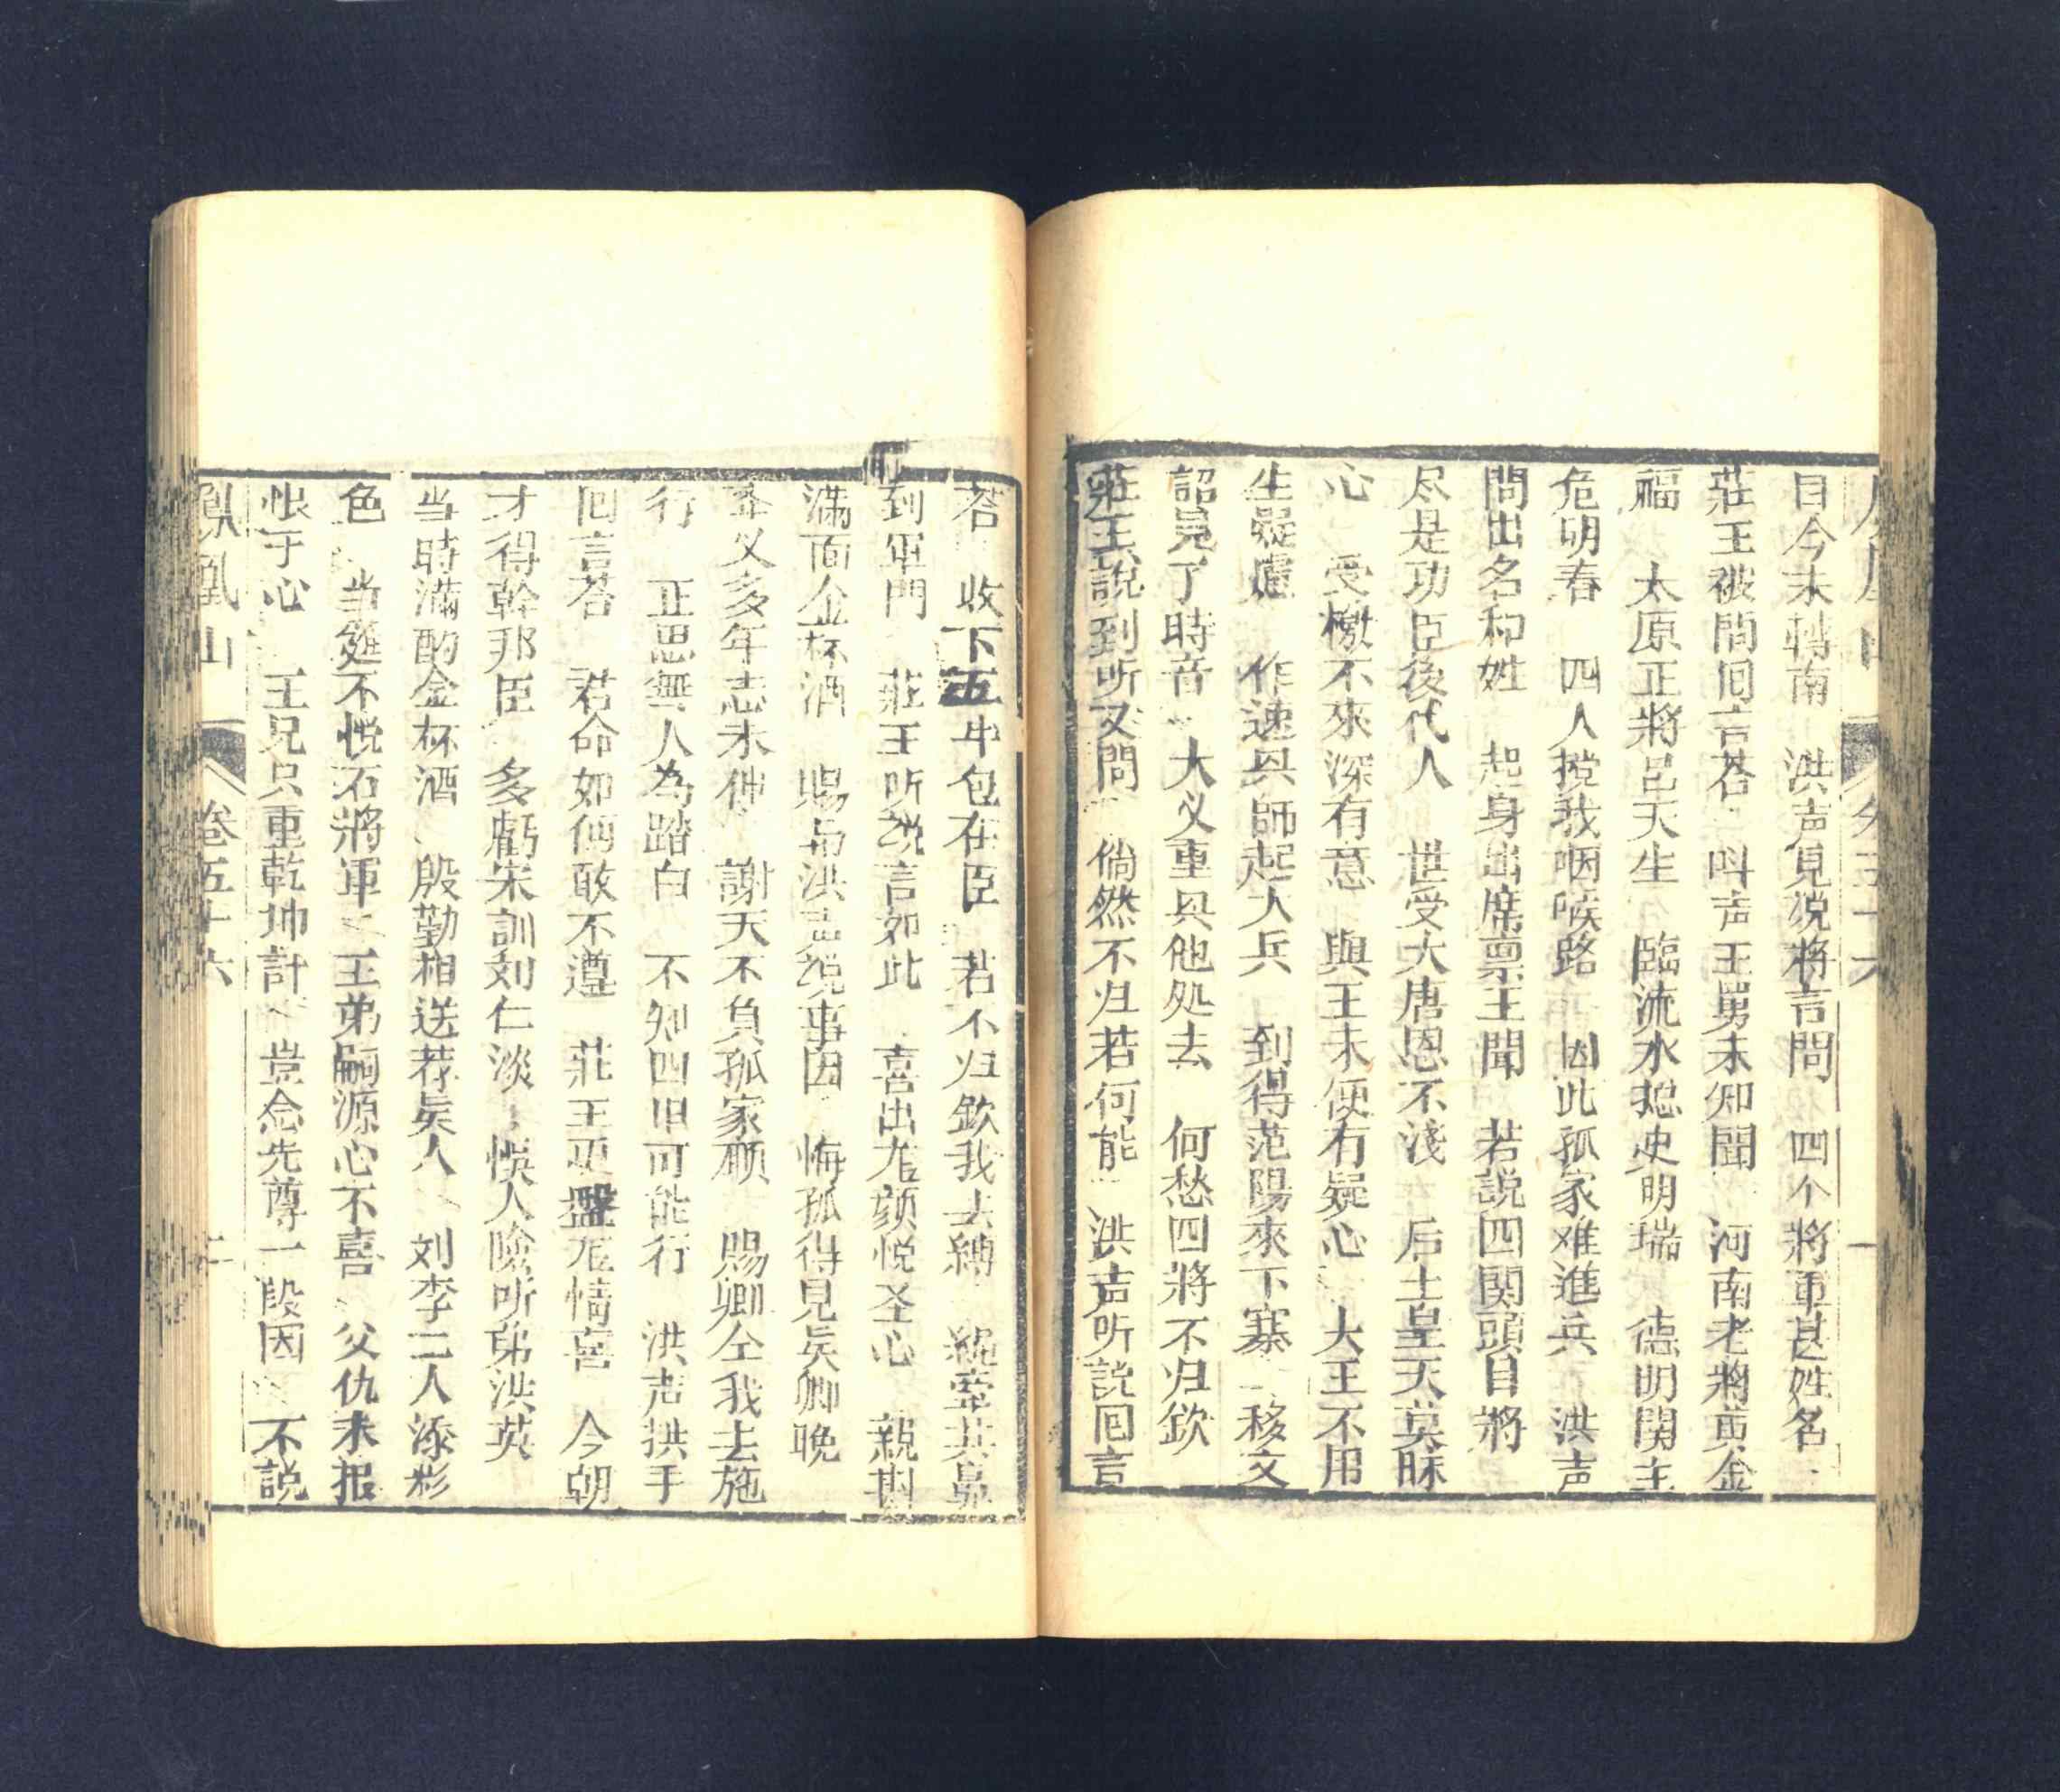 目今未轉南　洪声見説將言問　四个將軍甚姓名
莊王被問囘言荅　叫声王舅未知聞　河南老將黄金
福　太原正將吕天生　臨流水搃史明瑞　德明関主
危明春　四人攩我咽喉路　因此孤家难進兵　洪声
問出名和姓　起身出席禀王聞　若説四関頭目將
尽是功臣後代人　世受大唐恩不淺　后土皇天莫昧
心　受檄不來深有意　與王未便有疑心　大王不用
生疑慮　作速具師起大兵　到得范陽來下寨　移文
詔見了時音　大义重具他処去　何愁四將不归欽
莊王説到听又問　倘然不归若何能　洪声听説囘言
荅　收下五中包在臣　若不归欽我去縛　繩牽其鼻
到軍門　莊王听説言如此　喜出尨顔悦圣心　親斟
滿面金杯酒　賜与洪声説事因　悔孤得見矣卿晚
年义多年志未伸　謝天不負孤家願　賜卿仝我去施
行　正思無人為踏白　不知四旧可能行　洪声拱手
囘言荅　君命如何敢不遵　莊王更盤尨情喜　今朝
才得幹邦臣　多虧宋訓刘仁淡　悞人險听弟洪英
当時滿酌金杯酒　殷勤相送荐矣人　刘李二人添彩
色　当筵不悦石將軍　王弟嗣源心不喜　父仇未报
恨于心　王兄只重乾坤計　豈念先尊一段因　不説
鳳凰山　卷五十六　二